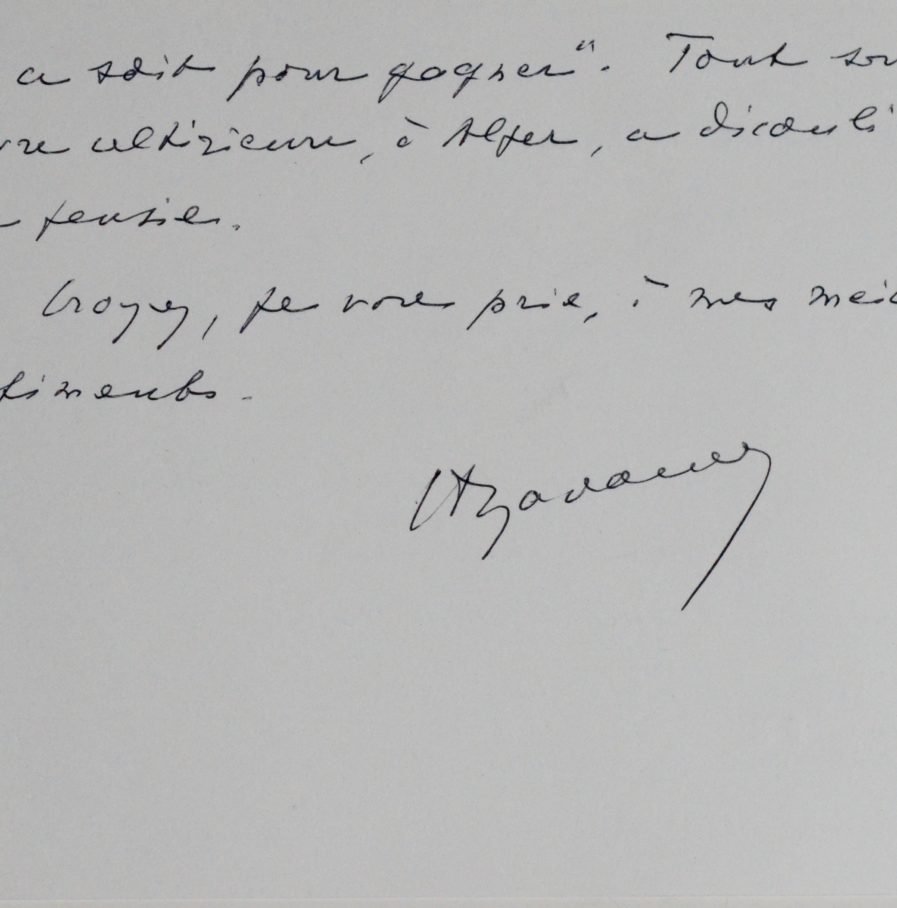 a soit pour gagner". Tout so
re ultérieure, à Alger, a découlé
pensée.
Croyez, je vous prie, à mes mei
timents.